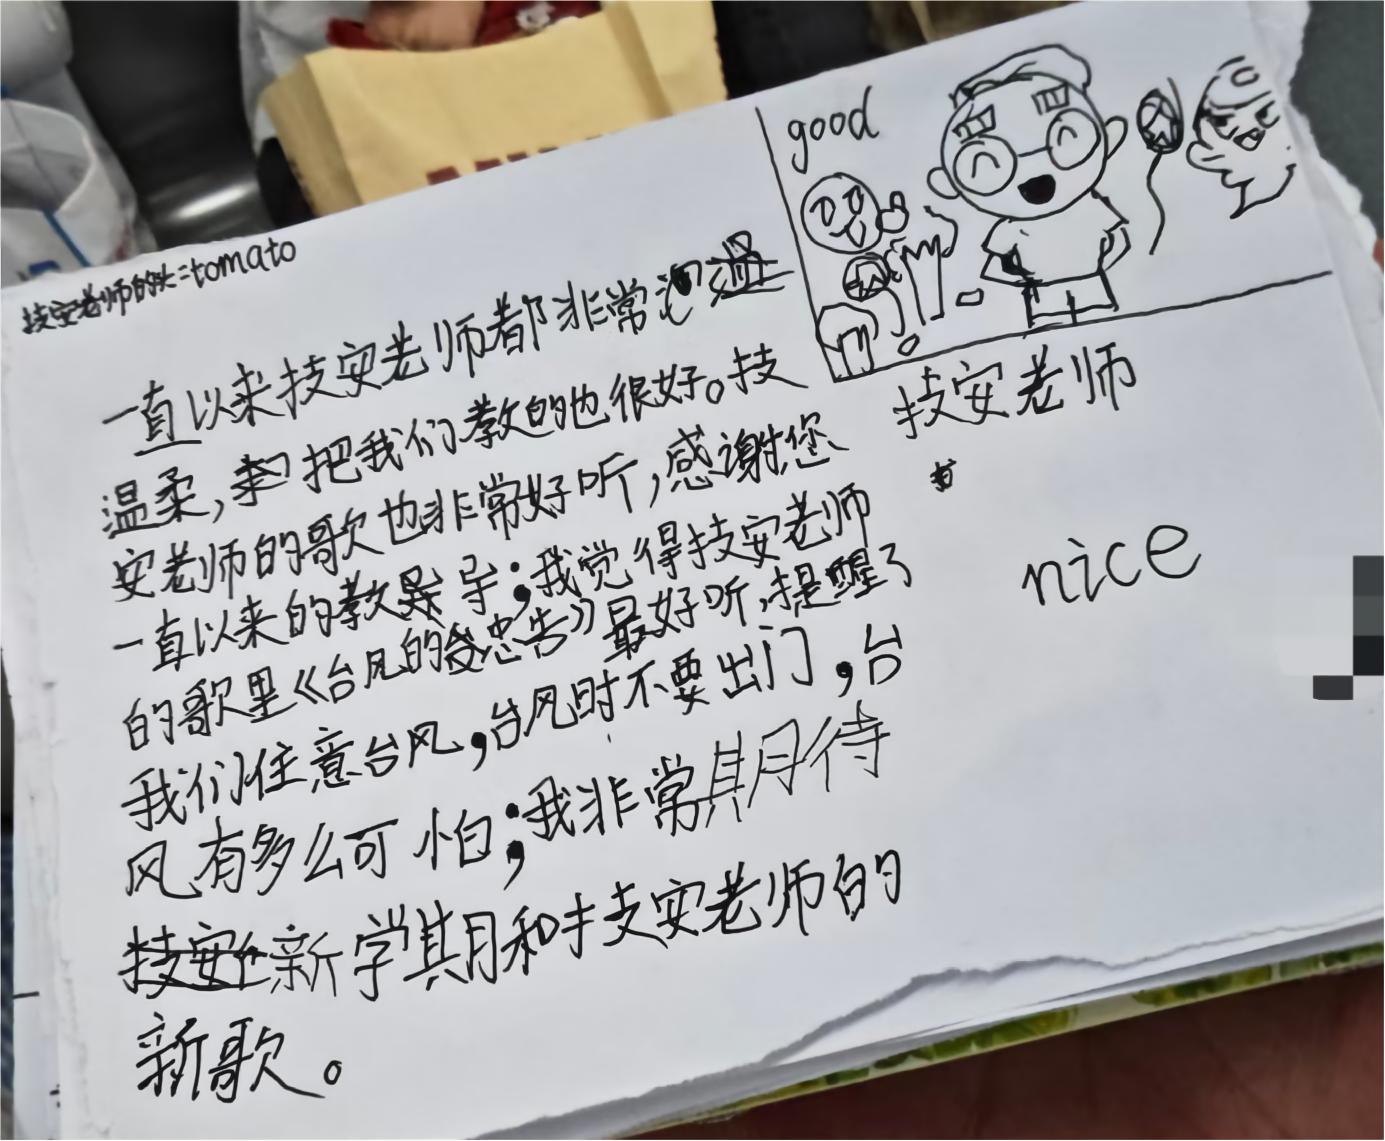 技安老师的头=tomato
good
一直以来技安老师都非常
温柔，把我们教的也很好。技
安老师的歌也非常好听，感谢您
一直以来的教导；我觉得技安老师
的歌里《台风的忠告》最好听，提醒了
我们住意台风，台风时不要出门，台
风有多么可怕；我非常期待
新学期和技安老师的
新歌。
技安老师
nice